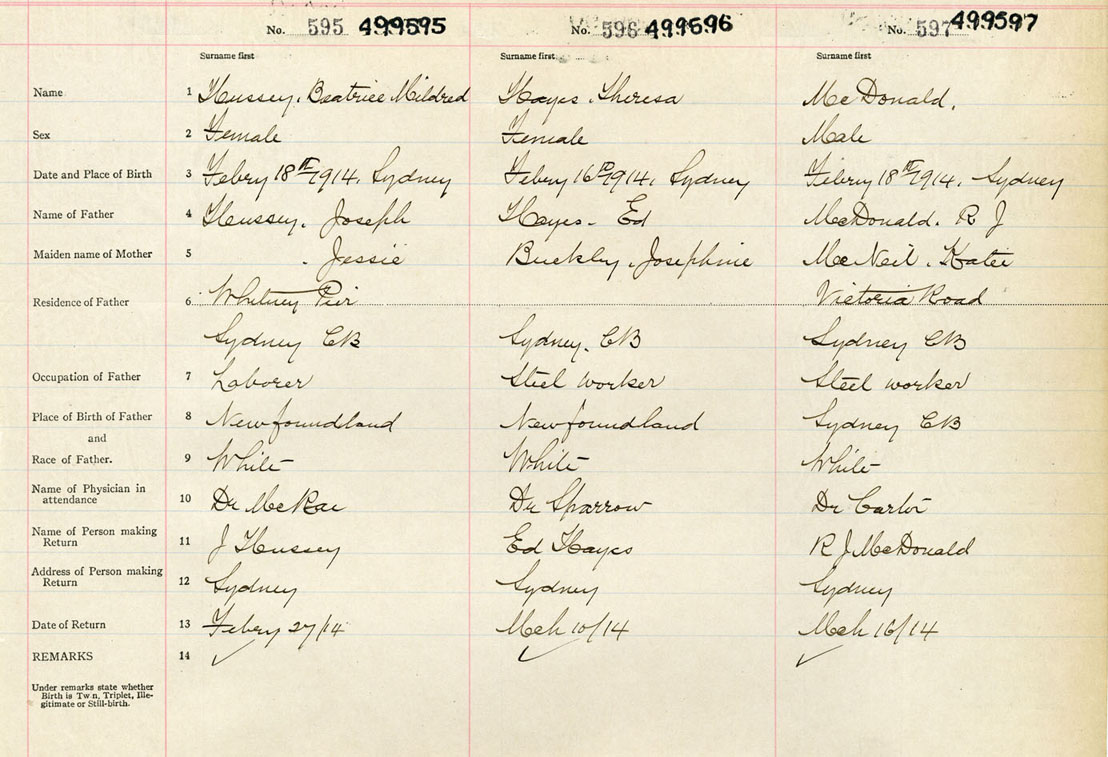 No. 595 499595 No. 596 499596 No. 597 499597
Surname first Surname first Surname first
Name 1 Hussey, Beatrice Mildred Hayes, Theresa McDonald.
Sex 2 Female Female Male
Date and Place of Birth 3 Febry 18th 1914. Sydney Febry 16th 1914. Sydney Febry 18th 1914. Sydney
Name of Father 4 Hussey. Joseph Hayes- Ed McDonald. R J
Maiden name of Mother 5 . Jessie Buckley, Josephine McNeil. Katie
Residence of Father 6 Whitney Pier Victoria Road
Sydney CB Sydney. CB Sydney CB
Occupation of Father 7 Laborer Steel worker Steel worker
Place of Birth of Father 8 Newfoundland Newfoundland Sydney CB
and
Race of Father. 9 White White White
Name of Physician in
attendance 10 Dr McRae Dr Sparrow Dr Carter
Name of Person making
Return 11 J Hussey Ed Hayes R J McDonald
Address of Person making
Return 12 Sydney Sydney Sydney
Date of Return 13 Febry 27/14 Mch 10/14 Mch 16/14
REMARKS 14 ✓ ✓ ✓
Under remarks state whether
Birth is Tw n, Triplet, Ille-
gitimate or Still-birth.